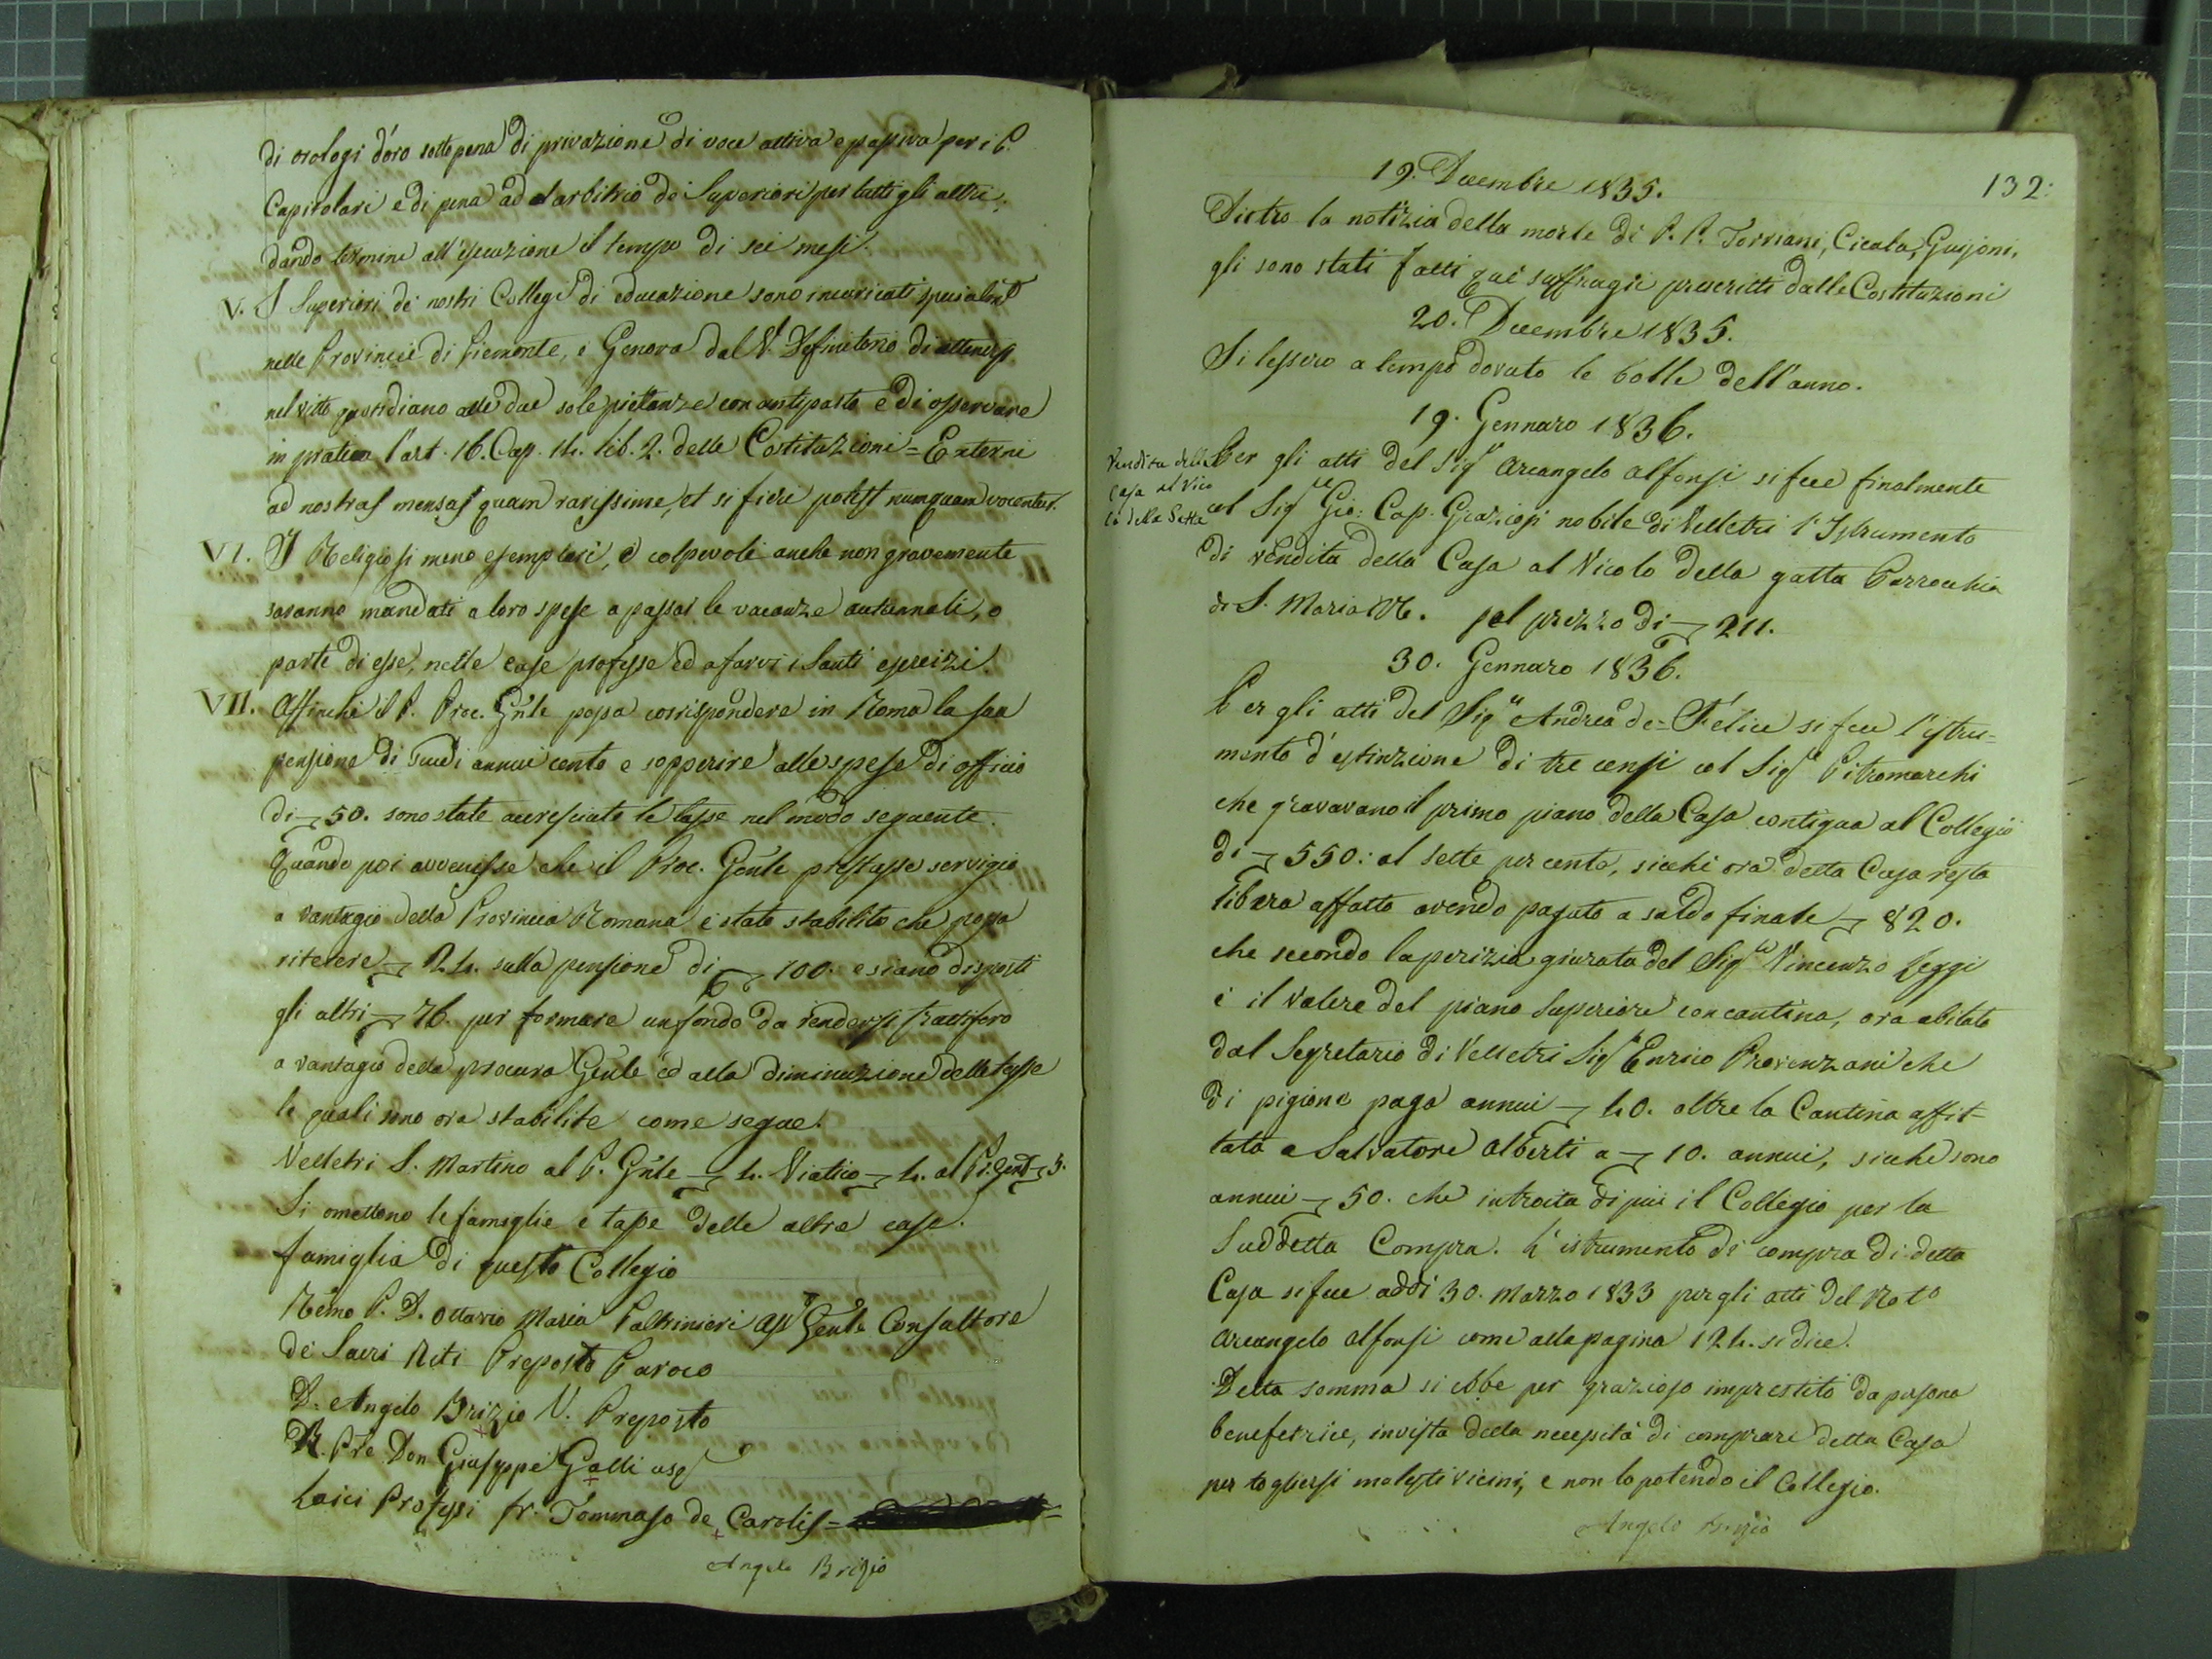 di orologi d'oro sotto pena di privazione di voce attiva e passiva per i P.
Capitolari e di pena ad arbitrio de' Superiori per tutti gli altri,
dando termine all'esecuzione il tempo di sei mesi.
V. I Superiori de' nostri Collegi di educazione sono incaricati specialmte
nelle Provincie di Piemonte, e Genova dal V. Definitorio di attenersi
nel vitto quotidiano alle due sole pietanze con antipasto e di osservare
in pratica l'art. 16. Cap. 14. lib. 2. delle Costituzioni = Externi
ad nostras mensas quam rarissime, et si fieri potest numquam vocentur.
VI. I Religiosi meno esemplari, e colpevoli anche non gravemente
saranno mandati a loro spese a passar le vacanze autunnali, o
parte di esse, nelle case professe ed a farvi i Santi esercizi.
VII. Affinchè il P. Proc. Gnle possa corrispondere in Roma la sua
pensione di Scudi annui cento e sopperire alle spese di officio
di 50. sono state accresciute le tasse nel modo seguente.
Quando poi avvenisse che il Proc. Genle prestasse servigio
a vantagio della Provincia Romana è stato stabilito che possa
ritenere 24. sulla pensione di 100. e siano disposti
gli altri 76. per formare un fondo da rendersi fruttifero
a vantagio della procura Genle ed alla diminuzione delle tasse
le quali sono ora stabilite come segue.
Velletri S. Martino al P. Gnle 4. Viatico 4. al P. Gent 3.
Si omettono le famiglie e tasse delle altre case.
famiglia di questo Collegio
Rẽmo P. D. Ottavio Maria Paltrinieri Genle Consultore
de' Sacri Riti Preposto Paroco
D. Angelo Brizio V. Preposto
R. Pre Don Giuseppe Galli
Laici Professi fr. Tommaso de Carolis =
Angelo Brizio
132.
19. Decembre 1835.
Dietro la notizia della morte di P. P. Torriani, Cicala,
gli sono stati fatti que' suffragii prescritti dalle Costituzioni
20. Decembre 1835.
Si lessero a tempo dovuto le bolle dell'anno.
19. Gennaro 1836.
Vendita della
Casa al Vico
lo della Gatta
Per gli atti del Sigr Arcangelo Alfonsi si fece finalmente
col Sigre Gio: Cap. Graziosi nobile di Velletri l'Istrumento
di vendita della Casa al Vicolo della gatta Parrochia
di S. Maria pel prezzo di 211.
30. Gennaro 1836.
Per gli atti del Sigr Andrea de-Felice si fece l'istru=
mento d'estinzione di tre censi col Sigr Pitromarchi
che gravavano il primo piano della Casa contigua al Collegio
di 550: al sette per cento, sicchè ora detta Casa resta
libera affatto avendo pagato a saldo finale 820.
che secondo la perizia giurata del Sigr Vincenzo Leggi
è il valere del piano Superiore con cantina, ora abitato
dal Segretario di Velletri Sigr Enrico Provenzani che
di pigione paga annui 40. oltre la Cantina affit=
tata a Salvatore Alberti a 10. annui, sicchè sono
annui 50. che introita di più il Collegio per la
Suddetta Compra. L'istrumento di compra di detta
Casa si fece addì 30. Marzo 1833 per gli atti del Noto
Arcangelo Alfonsi come alla pagina 124. si dice.
Detta somma si ebbe per grazioso imprestito da persona
benefatrice, in vista della necessità di comprare detta Casa
per togliersi molesti vicini, e non lo potendo il Collegio.
Angelo Brizio